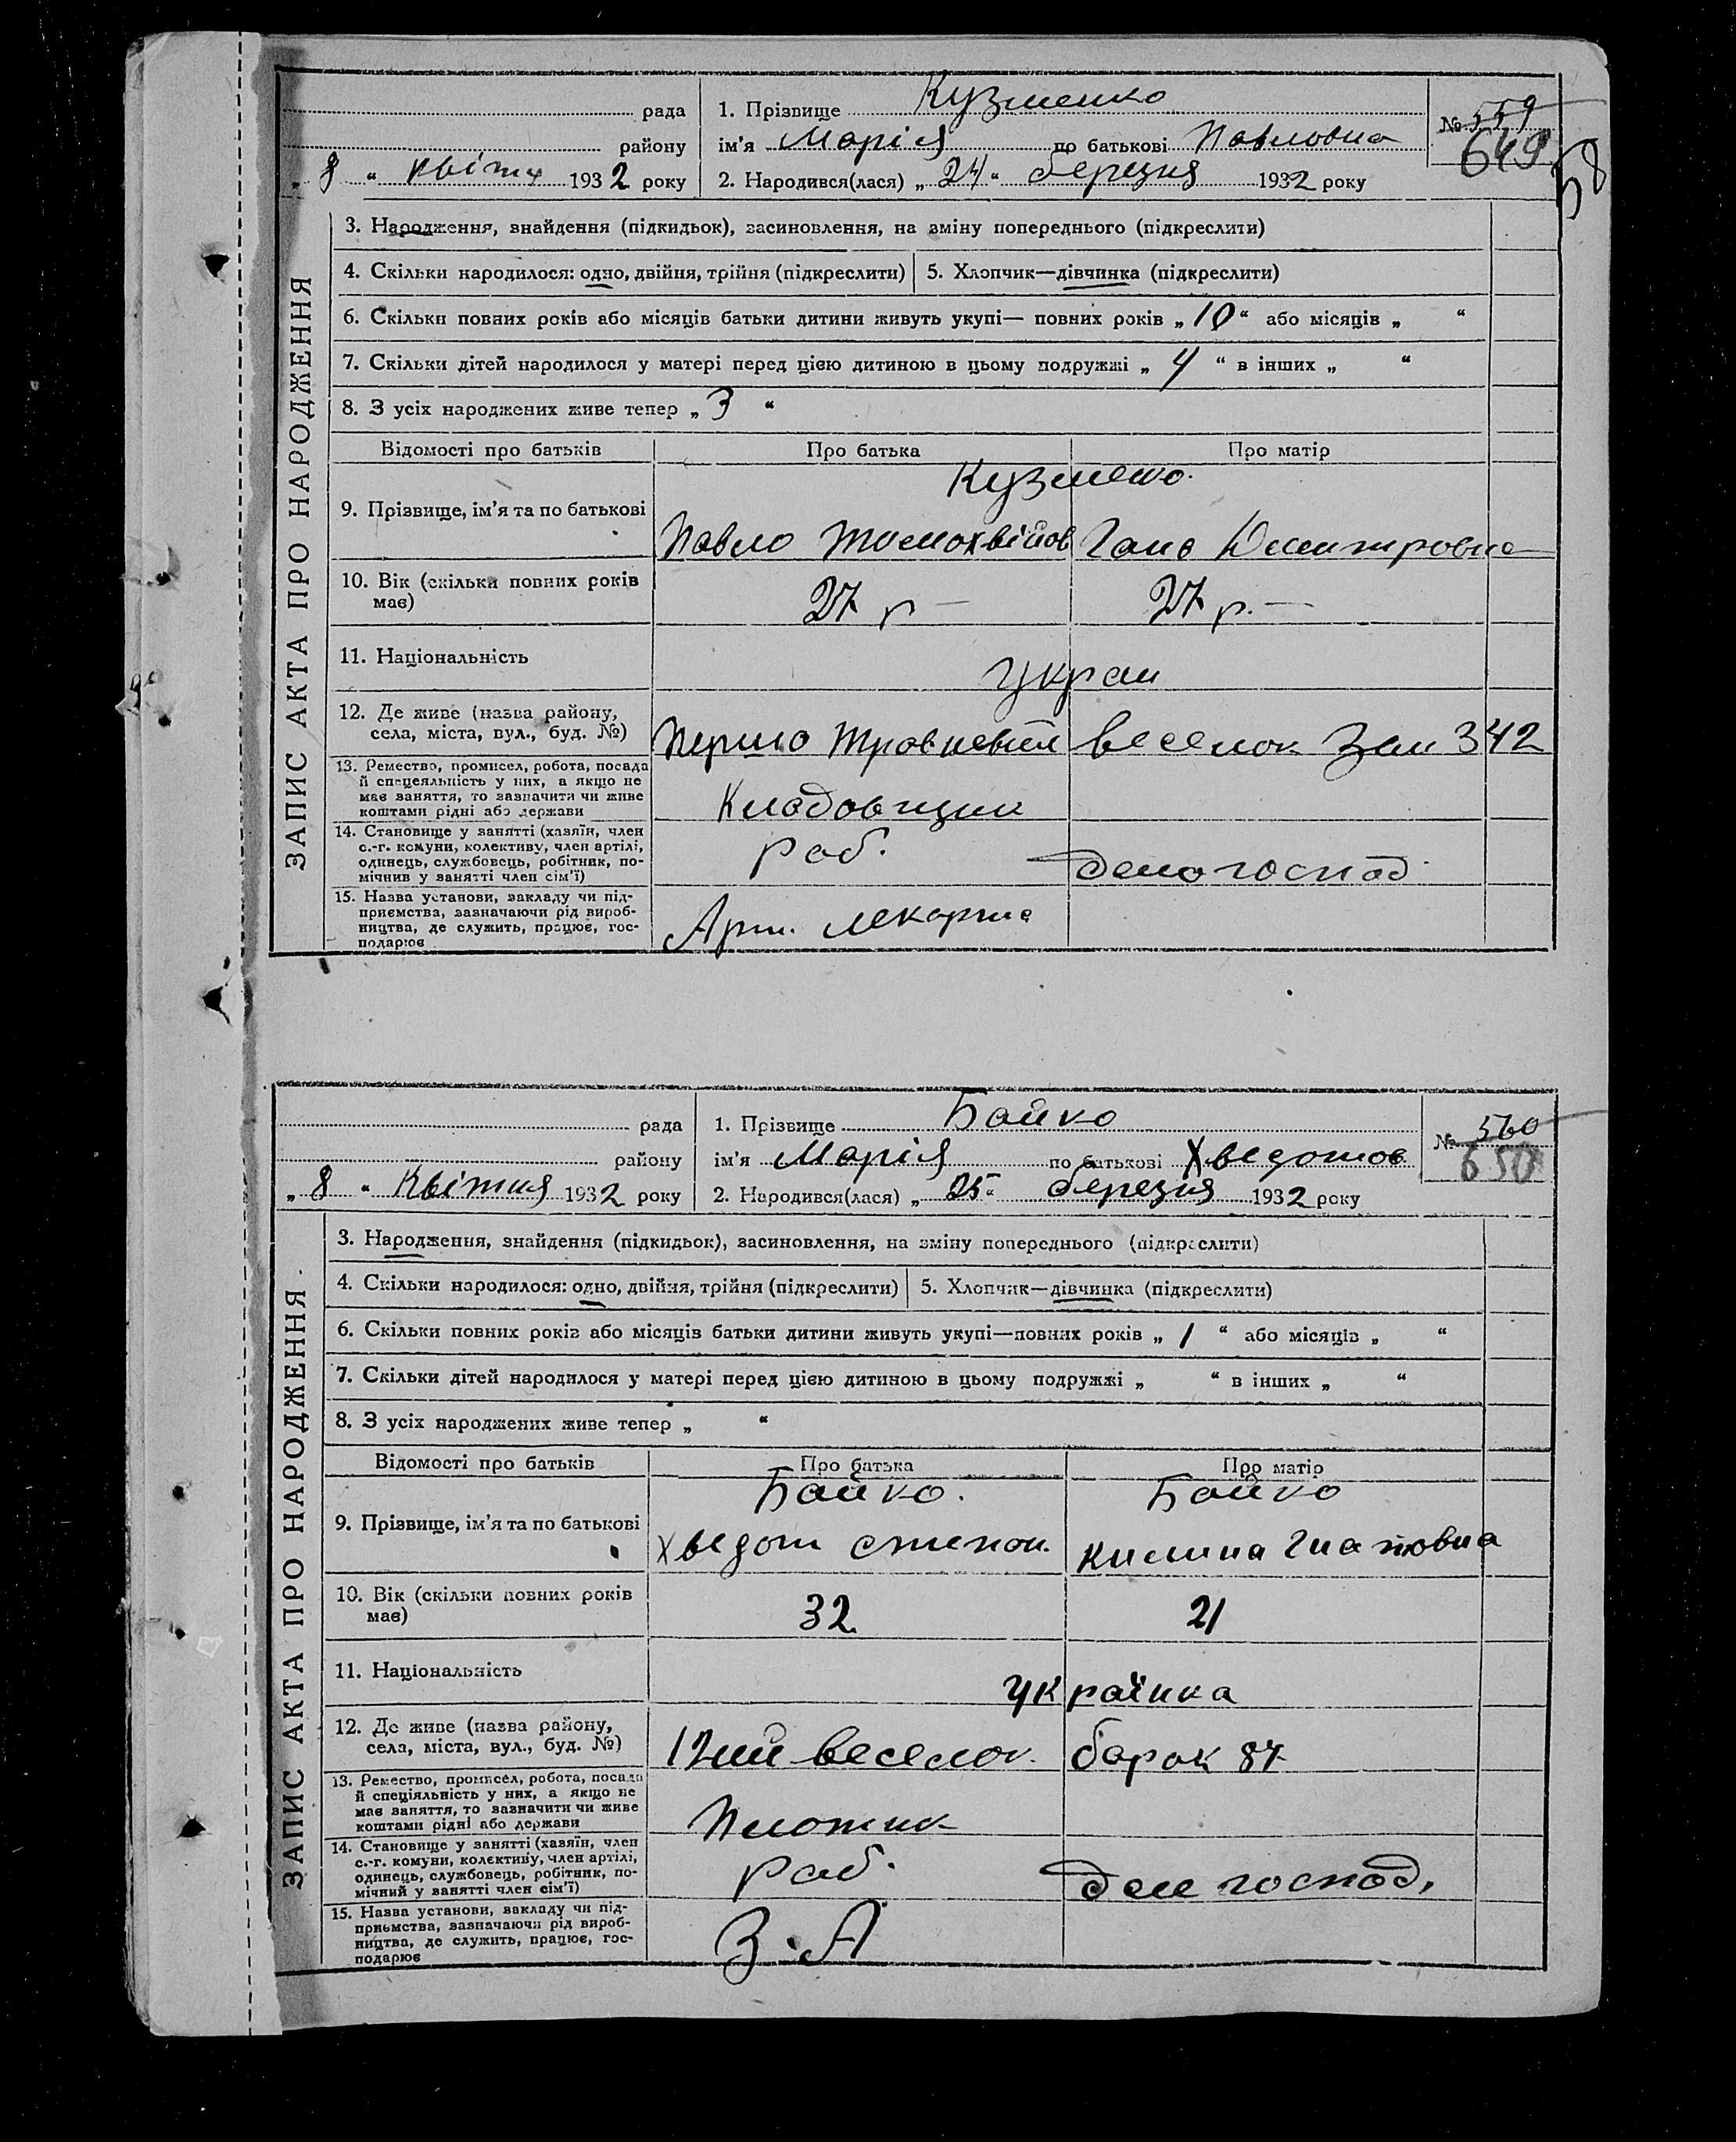 рада
1. Прізвище Кузменко
№ 559
649
58
району
ім'я Марія по батькові Павловна
„ 8 “ квітн 1932 року
2. Народився(лася) „ 24 “ березня 1932 року
ЗАПИС АКТА ПРО НАРОДЖЕННЯ
3. Народження, знайдення (підкидьок), засиновлення, на зміну попереднього (підкреслити)
4. Скільки народилося: одно, двійня, трійня (підкреслити)
5. Хлопчик—дівчинка (підкреслити)
6. Скільки повних років або місяців батьки дитини живуть укупі— повних років „ 10 “ або місяців „ “
7. Скільки дітей народилося у матері перед цією дитиною в цьому подружжі „ 4 “ в інших „ “
8. З усіх народжених живе тепер „ 3 “
Відомості про батьків
Про батька
Про матір
9. Прізвище, ім'я та по батькові
Кузменко.
Павло
Гана Дмитровна
10. Вік (скільки повних років
має)
27 р —
27 р. —
11. Національність
украи
12. Де живе (назва району,
села, міста, вул., буд. №)
веселок Зем 342
13. Ремество, промисел, робота, посада
й спецеяльність у них, а якщо не
має заняття, то зазначити чи живе
коштами рідні або держави
Кладовщик
14. Становище у занятті (хазяїн, член
с.-г. комуни, колективу, член артілі,
одинець, службовець, робітник, по-
мічнив у занятті член сім'ї)
раб.
домогоспод
15. Назва установи, закладу чи під-
приємства, зазначаючи рід вироб-
ництва, де служить, працює, гос-
подарює
Арт. пекарня
рада
1. Прізвище Байко
№ 560
650
району
ім'я Марія по батькові Хведотов
„ 8 “ Квітня 1932 року
2. Народився(лася) „ 25 “ березня 1932 року
ЗАПИС АКТА ПРО НАРОДЖЕННЯ
3. Народження, знайдення (підкидьок), засиновлення, на зміну попереднього (підкреслити)
4. Скільки народилося: одно, двійня, трійня (підкреслити)
5. Хлопчик—дівчинка (підкреслити)
6. Скільки повних років або місяців батьки дитини живуть укупі—повних років „ 1 “ або місяців „ “
7. Скільки дітей народилося у матері перед цією дитиною в цьому подружжі „ “ в інших „ “
8. З усіх народжених живе тепер „ “
Відомості про батьків
Про батька
Про матір
9. Прізвище, ім'я та по батькові
Байко.
Байко
Хведот степон.
Килина Гнатовна
10. Вік (скільки повних років
має)
32
21
11. Національність
українка
12. Де живе (назва району,
села, міста, вул., буд. №)
12ий веселок. барак 87
13. Ремество, промисел, робота, посада
й спеціяльність у них, а якщо не
має заняття, то зазначити чи живе
коштами рідні або держави
Плотник
14. Становище у занятті (хазяїн, член
с.-г. комуни, колективу, член артілі,
одинець, службовець, робітник, по-
мічний у занятті член сім'ї)
раб.
дом господ.
15. Назва установи, закладу чи під-
приємства, зазначаючи рід вироб-
ництва, де служить, працює, гос-
подарює
З. А